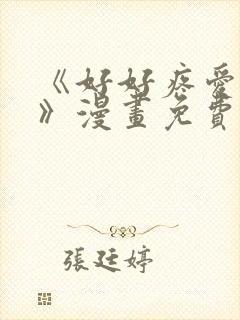 《好好疼愛
》漫畫免費
張廷婷